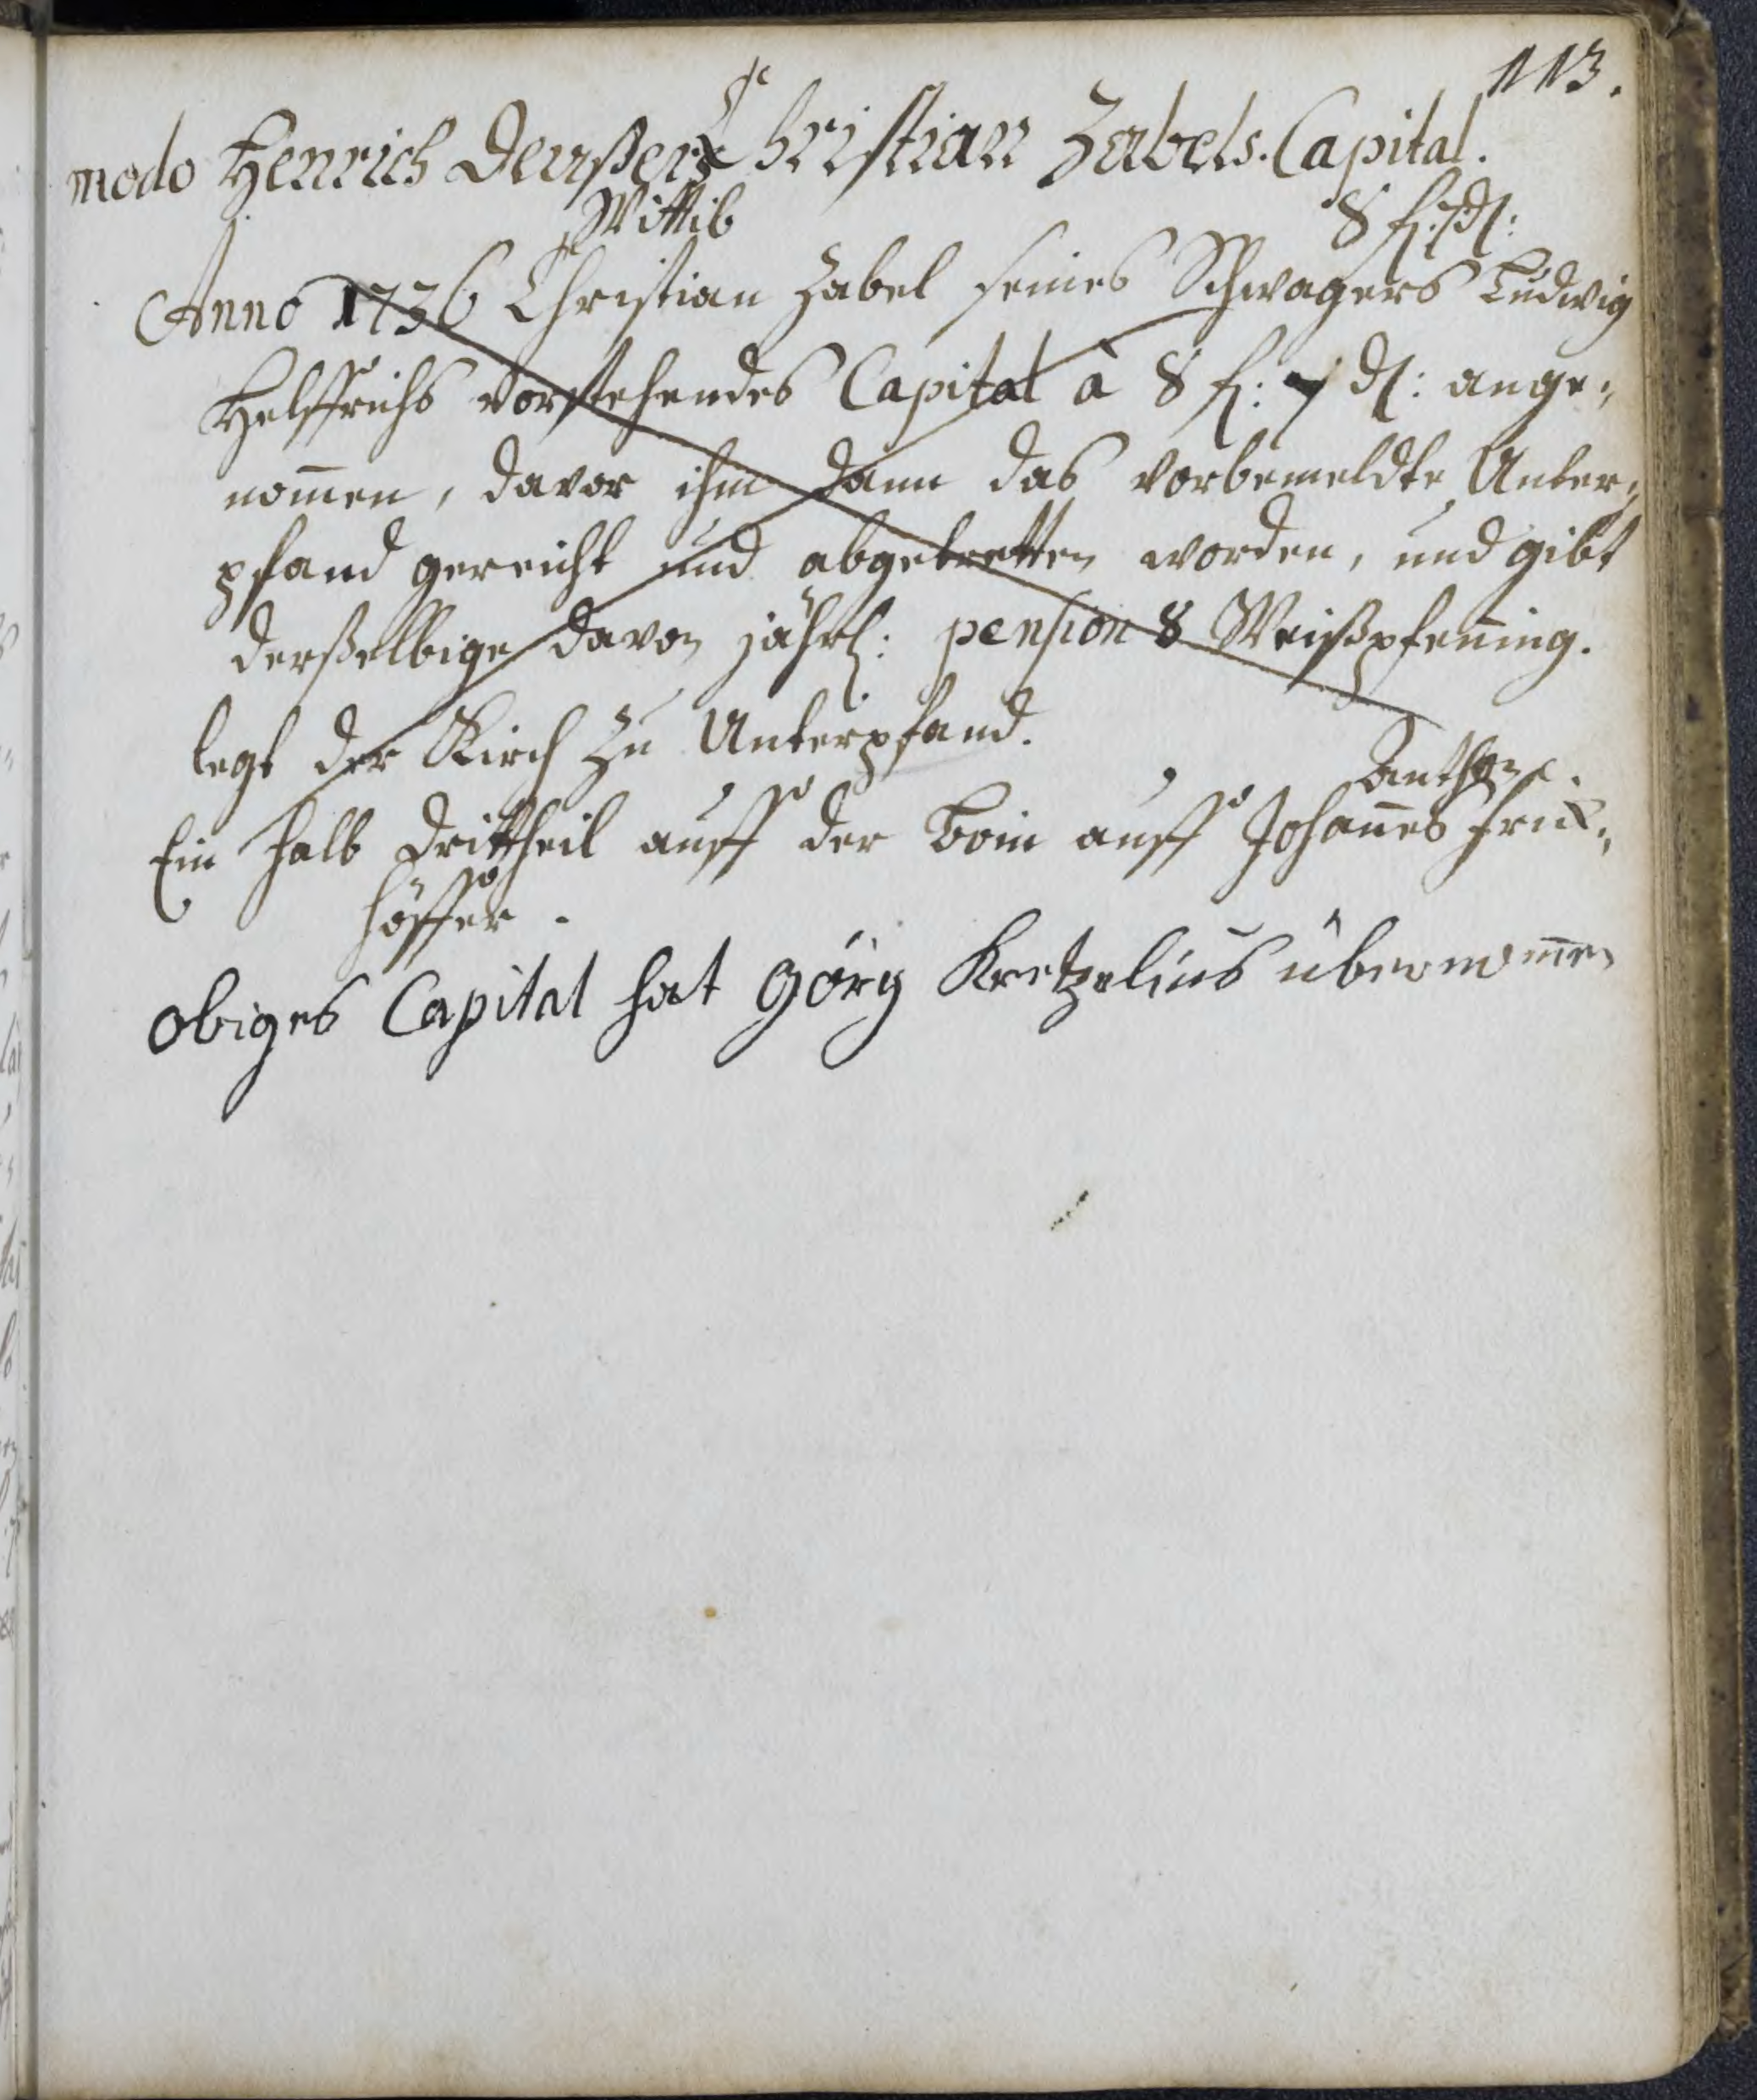 113.
modo Henrich Deußers Christian Zabels. Capital.
Wittib 8 fl: 7 d:
Anno 1736 Christian Zabel seines Schwagers Ludwig
Helffrichs vorstehendes Capital à 8 fl: 7 d: ange-
nom̄en, davor ihm dann das vorbemeldte Unter-
pfand gereicht und abgetretten worden, und gibt
derßelbige davon jährl: pension 8 Weißpfen̄ing.
legt der Kirch zu Unterpfand.
Ein halb Drittheil auff der Boin auff Johan̄es
höffer.
obiges Capital hat Görg Kretzelius übernom̄en